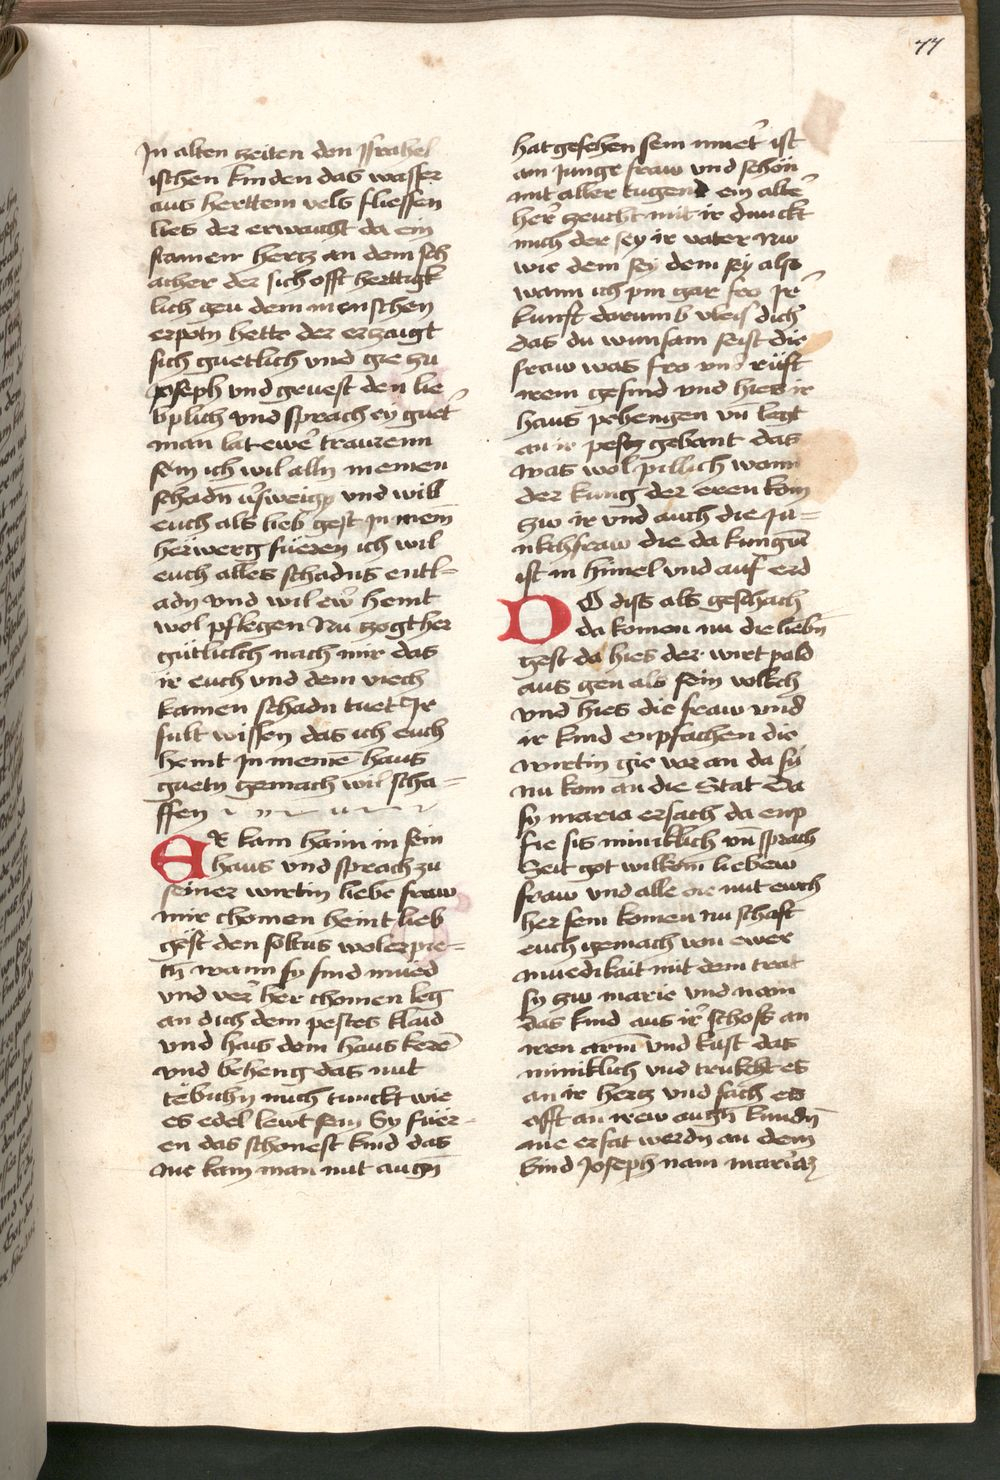 77
In alten zeiten den Jsrahel
ischen kinden das wasser
aus herttem vels fliessen
lies der erwaicht da ein
stainein hertz an dem sch
acher der sich offt herttigk
lich geu dem menschen
erpotn hette der erzaigt
sich guetlich vnd gie zu
joseph vnd gruest den lie
bplich vnd sprach ey guet'
man lat ewr̄ traurenn
sein ich wil alln meinen
schadn̄ vnd will
euch als lieb gest in mein̄
herwerg füeren ich wil
euch alles schadns entl=
adn vnd wil ewr̄ heint
wol pflegen Nu zogt her
gütlichch nach mir das
ir euch vnd dem viech
kainen schadn tuet Ir
sult wissen das ich euch
heint in meinē haus
guetn gemach wil scha=
ffen
ER kam haim in sein
haus vnd sprach zu
seiner wirtin liebe fraw
mir chomen heint lieb
gest den soltus wol erpie=
tn̄ wann sy sind mued
vnd ver' her chomen leg
an dich dein pestes klaid
vnd hais dein haus kerē
vnd beheng das mit
tebichn mich tunckt wie
es edel lewt sein Sy füer=
en das schonest kind das
nie kain man mit augn̄
hat gesehen sein muet' ist
ain junge fraw vnd schön
mit aller tugend ein alte'
her' zeucht mit ir dunckt
mich der sey ir vater Nw
wie dem sey dem sey also
wann ich pin gar fro Jr'
kunft darumb vleis dich
das du wunsam seist die
fraw was fro vnd rüft
irem gesind vnd hies ir
haus pehengen vn̄ legt
an ir pestz gebant das
was wol pillich wann
der kung der eren kom
zw ir vnd auch die ju=
nkchfraw die da kungin̄
ist in himel vnd auf erd
DO diss als geschach
da komen nu die liebn̄
gest da hies der wirt pald
aus gen als sein volkch
vnd hies die fraw vnd
ir kind enpfachen die
wirtin gie vor an da sy
nu kom an die Stat da
sy maria ersach da enp
fie sis minniklich vn̄ sprach
Seit got wilkom̄ liebew
fraw vnd alle die mit ewch
her sein komen nu schaft
euch gemach von ewer
muedikait mit dem trat
sy zw marie vnd nam
das kind aus ir' schoss an
iren arm̄ vnd kust das
miniklich vnd trukcht es
an ir hertz vnd sach es
offt an irew augn̄ kundn̄
nie ersat werdn an dem
kind Joseph nam maria